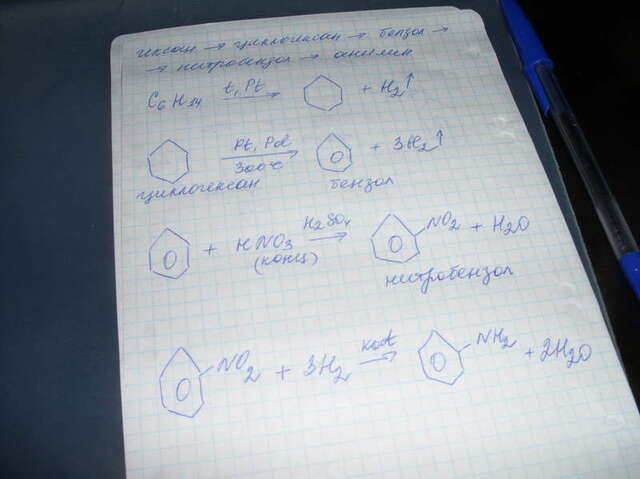 гексан → циклогексан → бензол →
→ нитробензол → анилин
C₆H₁₄ t, Pt → + H₂↑
Pt, Pd → 300°C + 3H₂↑
циклогексан бензол
+ HNO₃ (конц) H₂SO₄ → NO₂ + H₂O
нитробензол
NO₂ + 3H₂ kat → NH₂ + 2H₂O